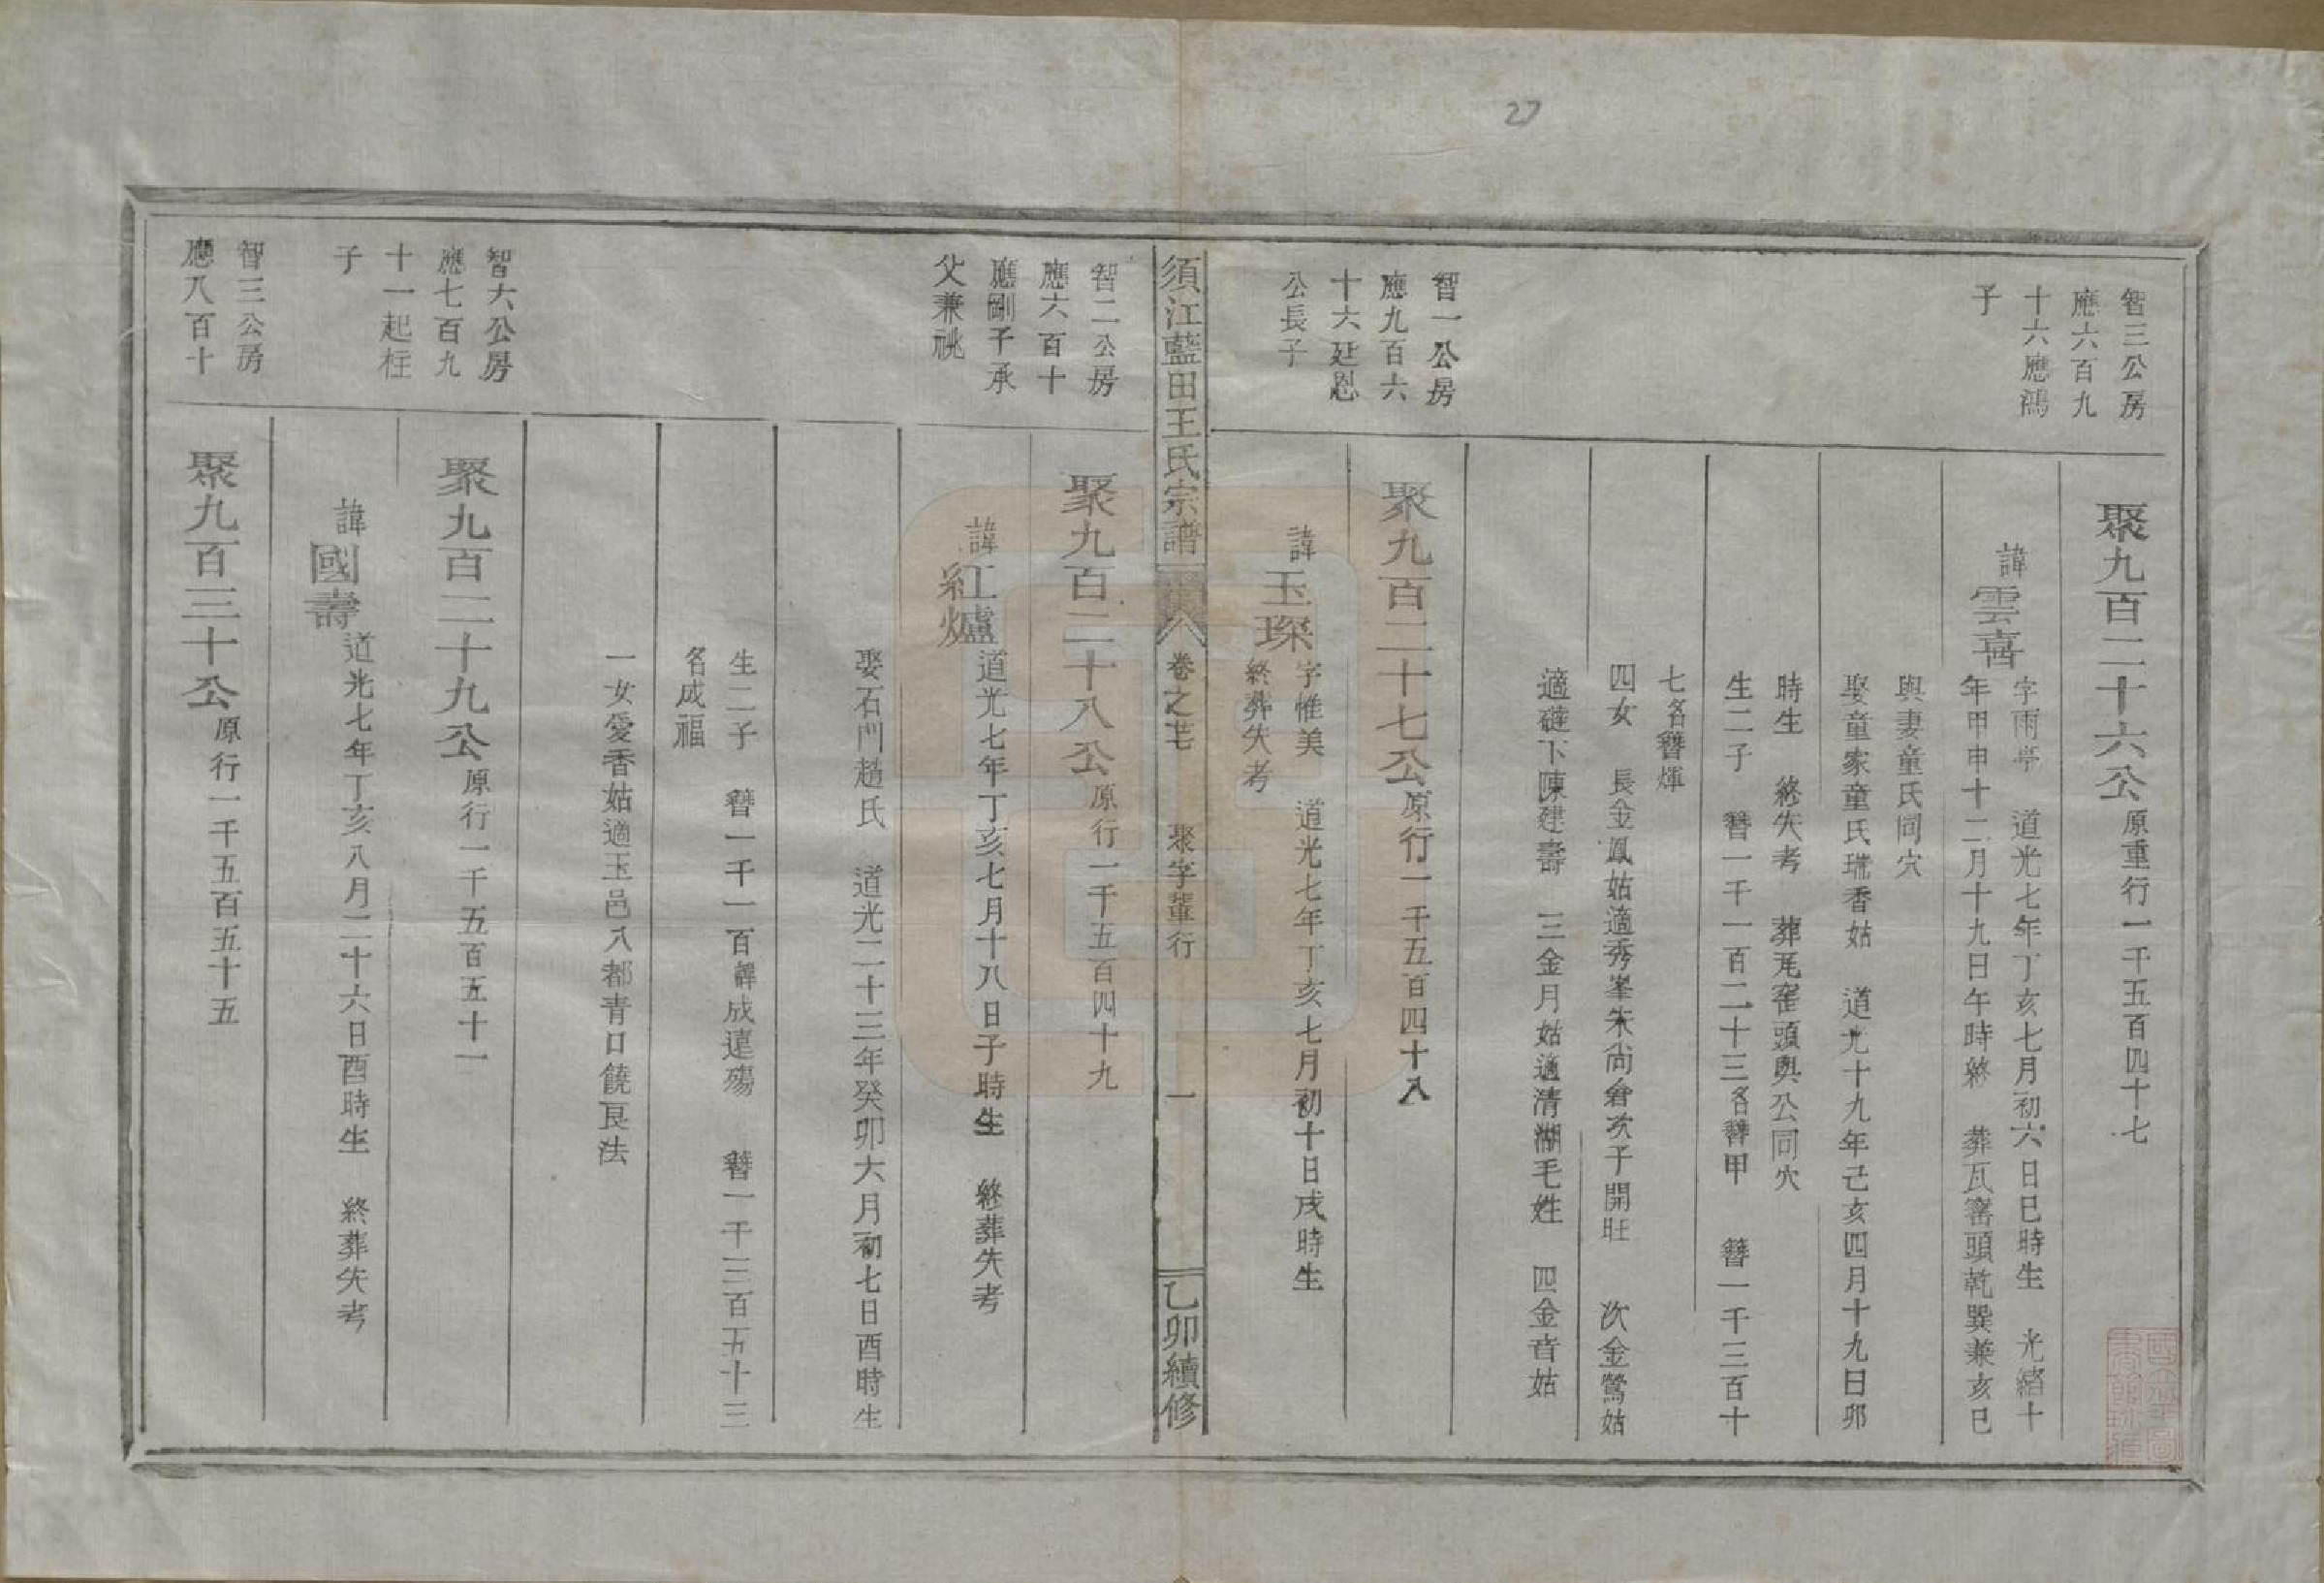 27
智三公房
應六百九
十六應鴻
子
聚九百二十六公原重行一千五百四十七
諱雲喜
字雨亭 道光七年丁亥七月初六日巳時生 光緒十
年甲申十二月十九日午時終 葬瓦窰頭乾巽兼亥巳
與妻童氏同穴
娶童家童氏瑞香姑 道光十九年己亥四月十九日卯
時生 終失考 葬瓦窰頭與公同穴
生二子 瞽一千一百二十三名瞽甲 瞽一千三百十
七名瞽煇
四女 長金鳳姑適秀峯朱尚倉次子開旺 次金鶯姑
適礎下陳建壽 三金月姑適清湖毛姓 四金音姑
智一公房
應九百六
十六延恩
公長子
聚九百二十七公原行一千五百四十八
諱玉琛
字惟美 道光七年丁亥七月初十日戌時生
終葬失考
須江藍田王氏宗譜 卷之 聚字輩行 一 乙卯續修
智二公房
應六百十
應剛子承
父兼祧
聚九百二十八公原行一千五百四十九
諱紅爐 道光七年丁亥七月十八日子時生 終葬失考
娶石門趙氏 道光二十三年癸卯六月初七日酉時生
生二子 瞽一千一百 成遠殤 瞽一千三百五十三
名成福
一女愛香姑適玉邑八都青口饒良法
智六公房
應七百九
十一起柱
子
聚九百二十九公原行一千五百五十一
諱國壽 道光七年丁亥八月二十六日酉時生 終葬失考
智三公房
應八百十
聚九百三十公原行一千五百五十五